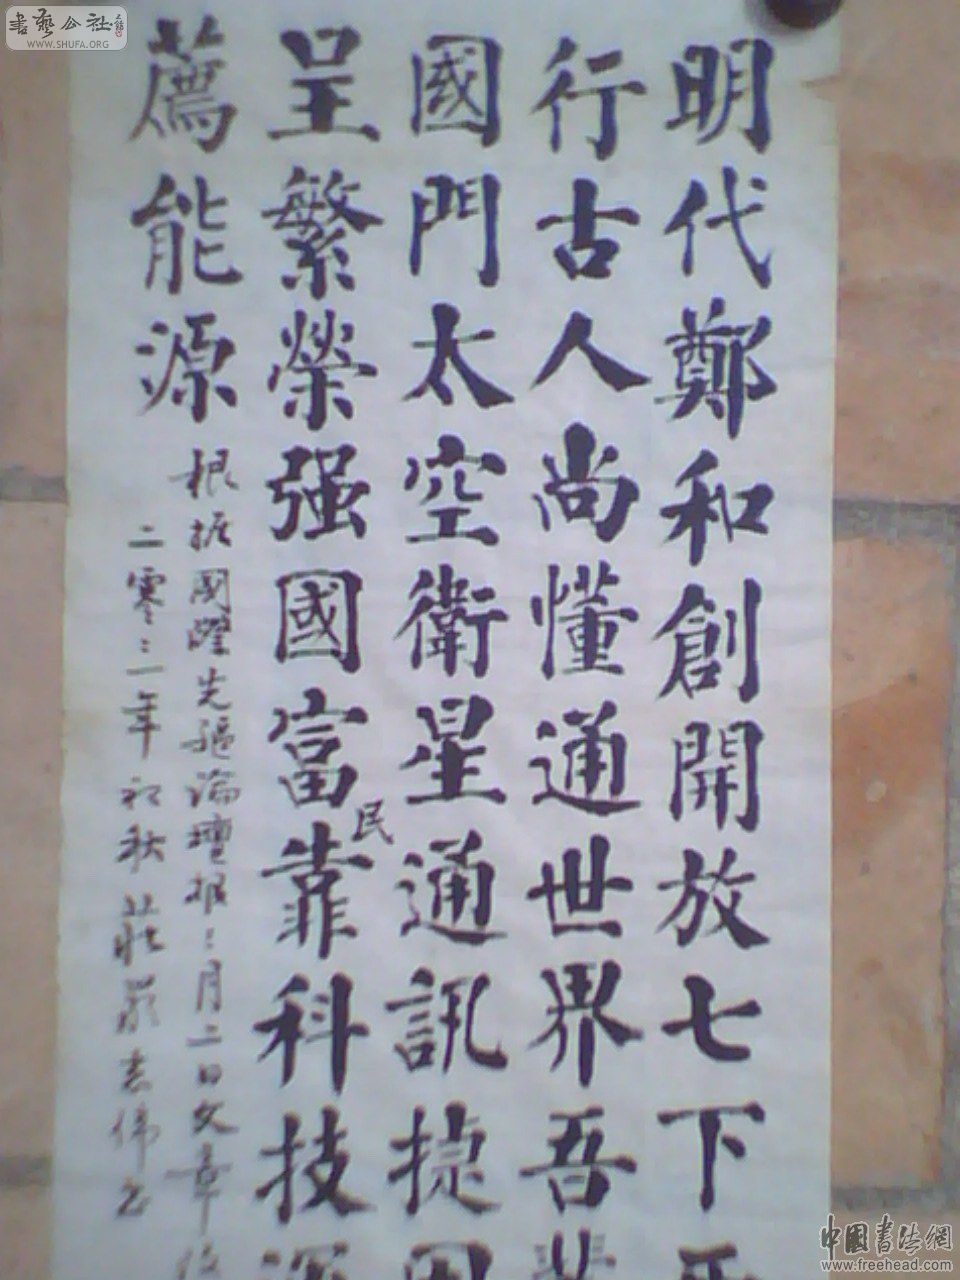 明代鄭和創開放七下西
行古人尚懂通世界吾輩
國門太空衛星通訊捷用
呈繁榮强國富民靠科技深
薦能源
根据國躍先驅論壇報二月二日文章
二零二一年初秋莊嚴志偉書
書藝公社
WWW.SHUFA.ORG
中國書法網
www.freehead.com